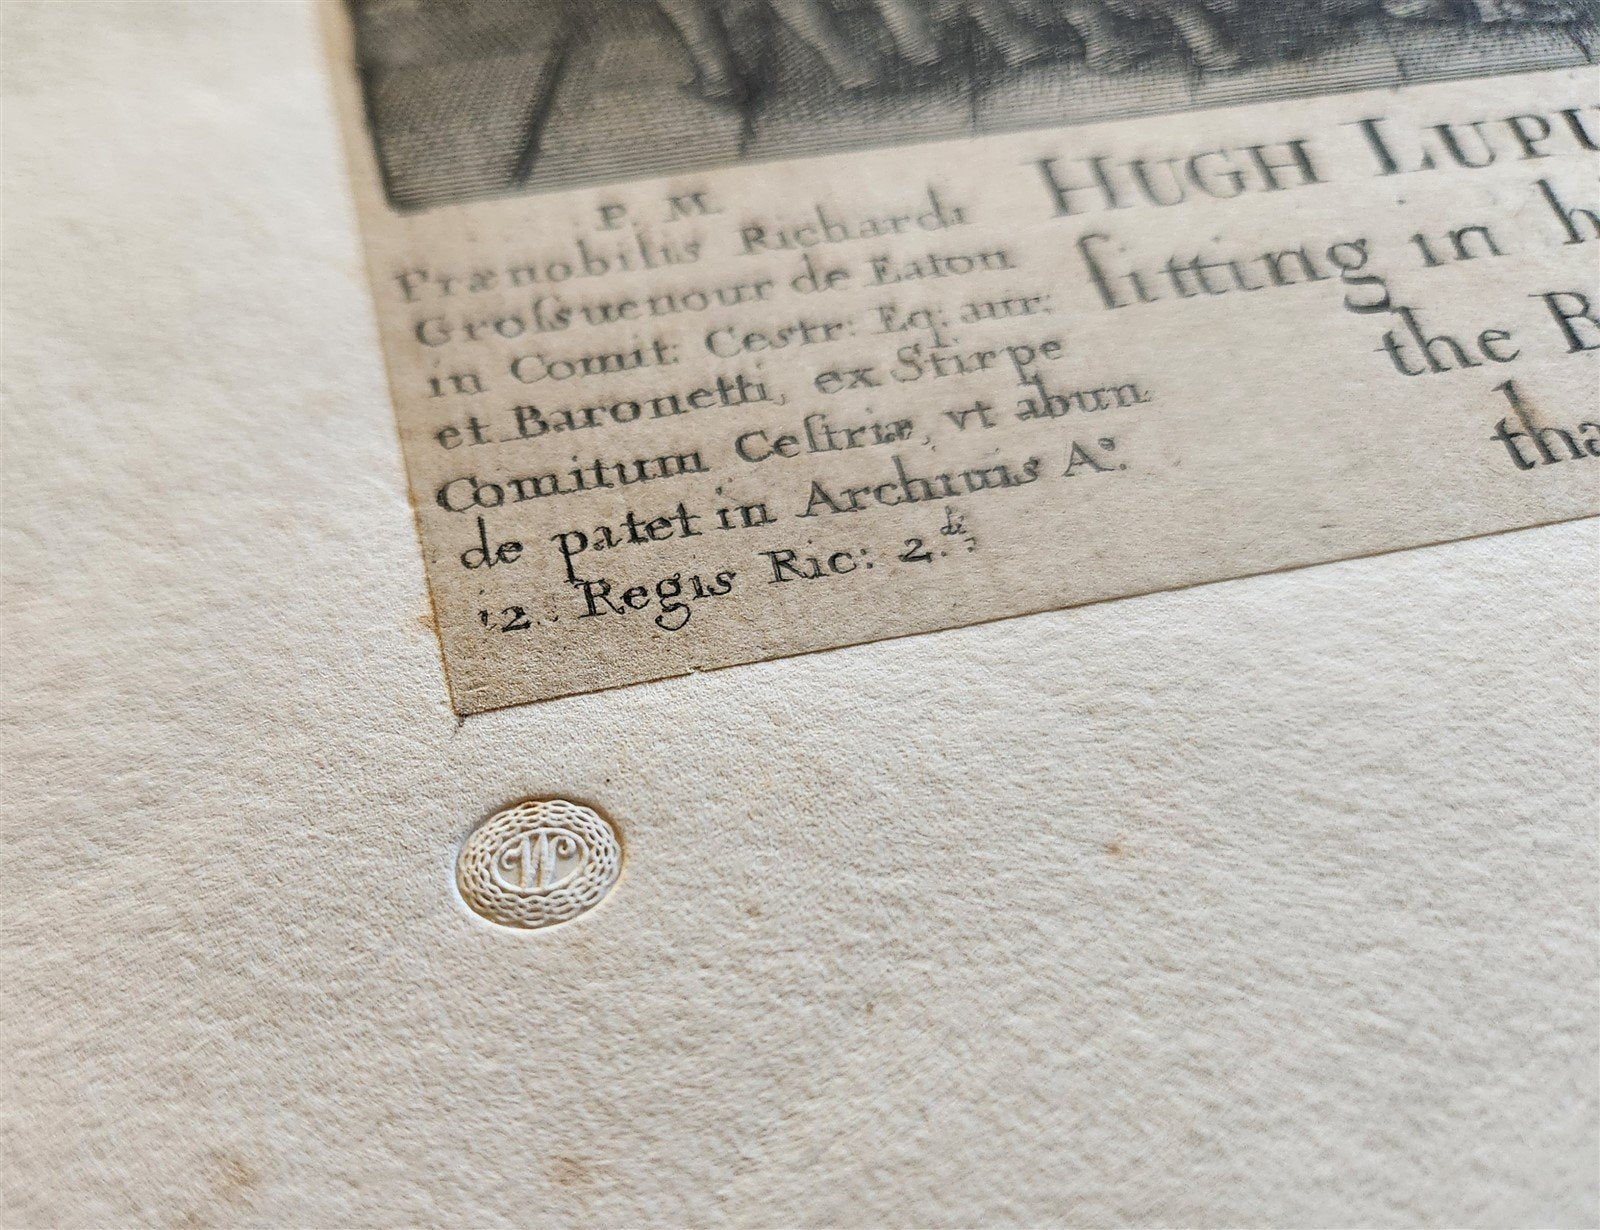 P. M.
Prænobilis Richardi
Groſsuenour de Eaton
in Comit: Cestr: Eq: aur:
et Baronetti, ex Stirpe
Comitum Ceſtriæ, vt abun
de patet in Archiuis Aº.
12. Regis Ric: 2.di
HUGH LUPU
ſitting in h
the B
tha
W